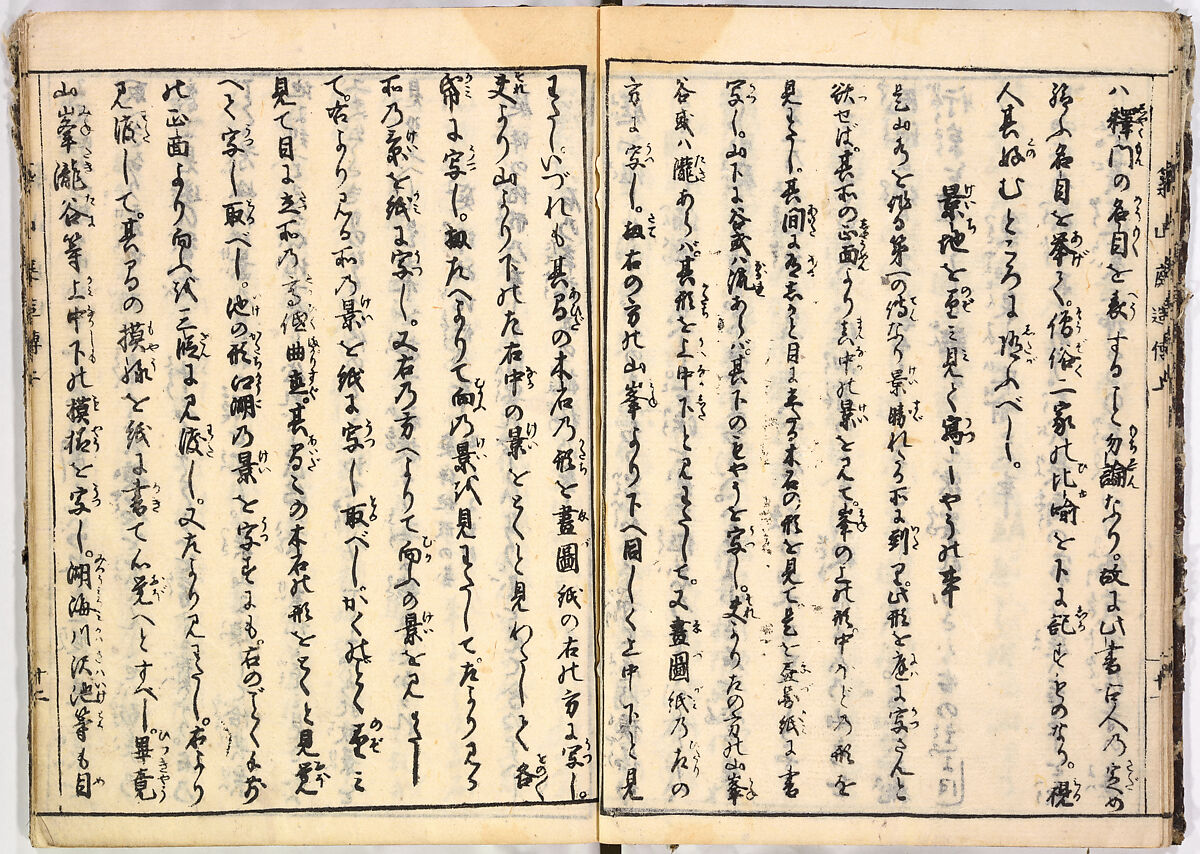 築山庭造傳上
ハ釋門の名目を表すること勿論なり。故に此書古人乃定め
給ふ名目を挙て。僧俗二家の比喩を下に記するものなり。視
人其好むところに随ふべし。
景地を望ミ見て寫しやうの事
是山水を作る第一の傳なり景勝れたる所に到り此形を庭に写さんと
欲せば。其所の正面より真中の景を見て。峯の上の形中のどの形を
見わたし。其間に有きつと目に立たる木石の形を見て是を畫圖紙に書
写し。山下に谷或ハ流あらバ。其下のもやうを写し。夫より左の方の山峯
谷或ハ瀧あらバ。其形を上中下と見わたして。又畫圖紙乃左の
方に写し。扨右の方の山峯より下へ同しく上中下と見
わたし。いづれも其間の木石乃形を畫圖紙の右の方に写し。
夫より山より下の左右中の景をとくと見わたしとく各
紙に写し。扨左へよりて向乃景を見わたして。左より見る
所乃景を紙に写し。又右乃方へよりて向ふの景を見わたし
て右より見る所乃景を紙に写し取べし。かくのごとく望ミ
見て目に立所乃高低曲直。其間々の木石の形をとくと見覚
へて写し取べし。池の形江湖乃景を写すにも。右のごとくまづ
の正面より向へを三段に見渡し。又左より見わたし。右より
見渡して。其間の摸様を紙に書て心覚へとすべし。畢竟
山峯瀧谷等上中下の摸様を写し。湖海川沢池等も目
十二